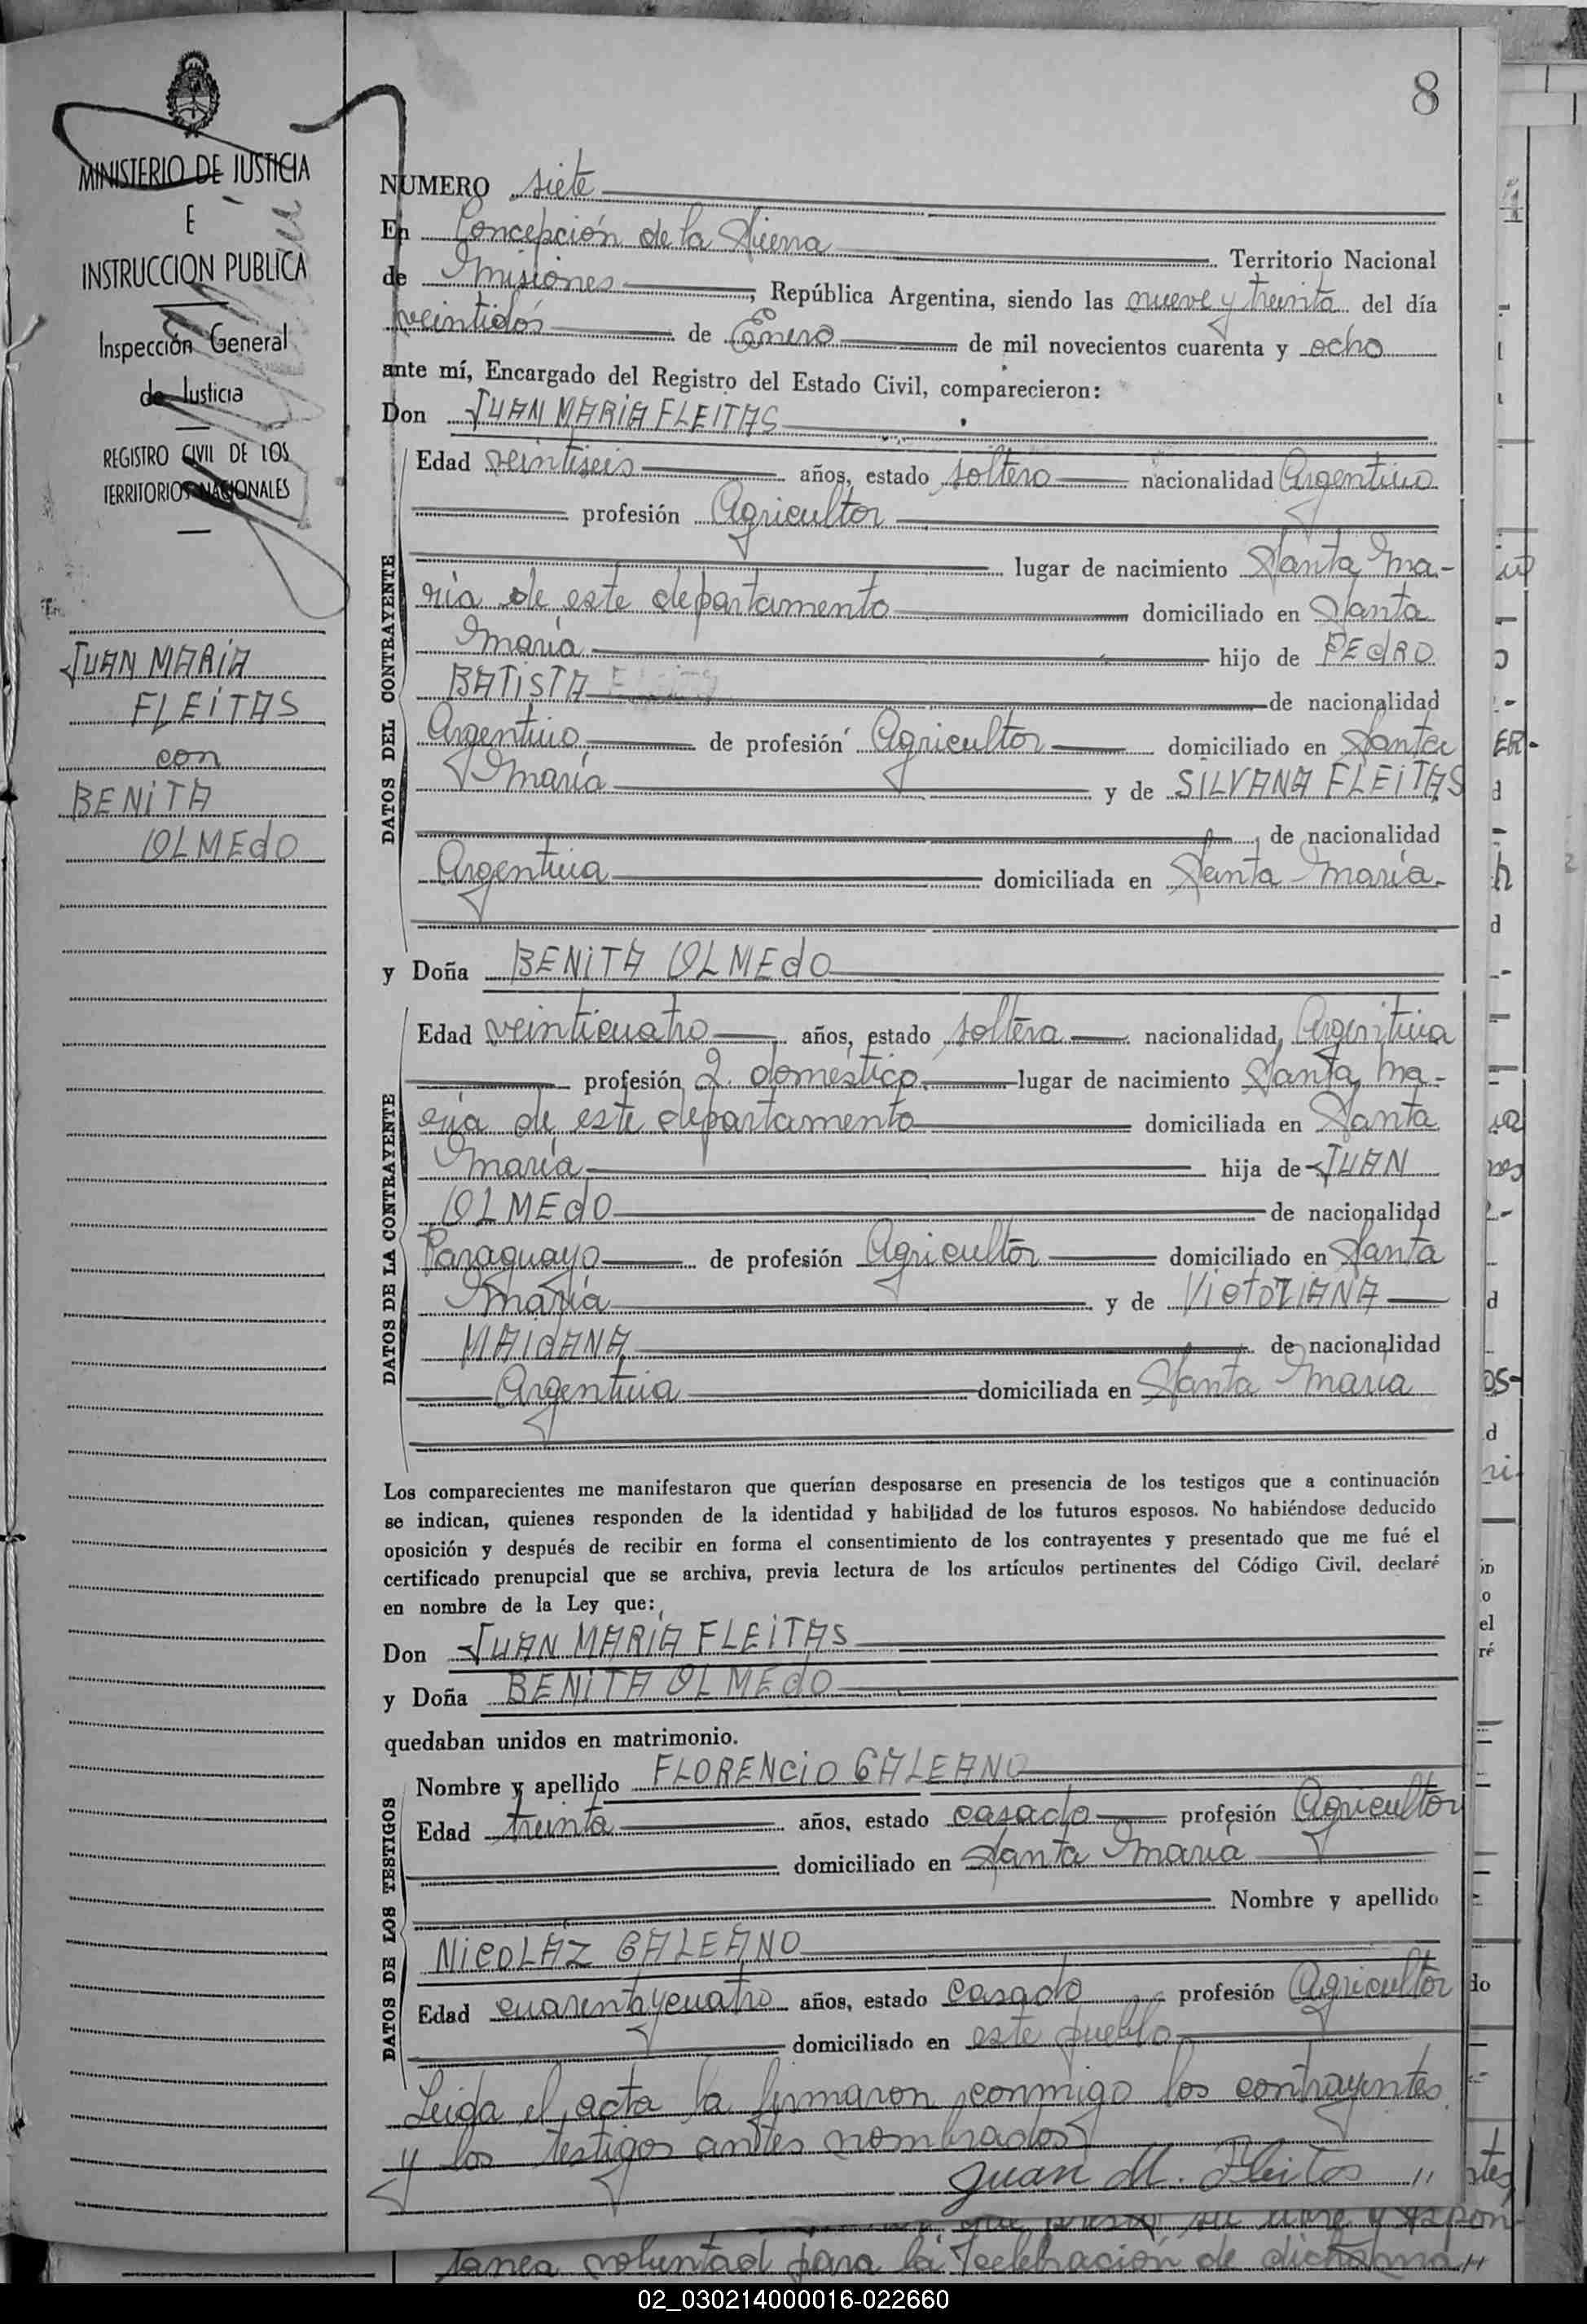 8
MINISTERIO DE JUSTICIA
E
INSTRUCCION PUBLICA
Inspección General
de Justicia
REGISTRO CIVIL DE LOS
TERRITORIOS NACIONALES
JUAN MARIA
FLEITAS
con
BENITA
OLMEdO
NUMERO siete
En Concepción de la Sierra Territorio Nacional
de Misiones, República Argentina, siendo las nueve y treinta del día
veintidós de Enero de mil novecientos cuarenta y ocho
ante mí, Encargado del Registro del Estado Civil, comparecieron:
Don JUAN MARIA FLEITAS
DATOS DEL CONTRAYENTE
Edad veintiseis años, estado soltero nacionalidad Argentino
profesión Agricultor
lugar de nacimiento Santa Ma-
ria de este departamento domiciliado en Santa
María hijo de PEdRO
BATISTA de nacionalidad
Argentino de profesión Agricultor domiciliado en Santa
María y de SILVANA FLEITAS
de nacionalidad
Argentina domiciliada en Santa María.
y Doña BENITA OLMEdO
DATOS DE LA CONTRAYENTE
Edad veinticuatro años, estado soltera nacionalidad Argentina
profesión Q. doméstico. lugar de nacimiento Santa Ma-
ria de este departamento domiciliada en Santa
María hija de JUAN
OLMEdO de nacionalidad
Paraguayo de profesión Agricultor domiciliado en Santa
María y de VictoRIANA
MAIdANA de nacionalidad
Argentina domiciliada en Santa María
Los comparecientes me manifestaron que querían desposarse en presencia de los testigos que a continuación
se indican, quienes responden de la identidad y habilidad de los futuros esposos. No habiéndose deducido
oposición y después de recibir en forma el consentimiento de los contrayentes y presentado que me fué el
certificado prenupcial que se archiva, previa lectura de los artículos pertinentes del Código Civil, declaré
en nombre de la Ley que:
Don JUAN MARIA FLEITAS
y Doña BENITA OLMEdO
quedaban unidos en matrimonio.
DATOS DE LOS TESTIGOS
Nombre y apellido FLORENCIO GALEANO
Edad treinta años, estado casado profesión Agricultor
domiciliado en Santa María
Nombre y apellido
NICOLÁZ GALEANO
Edad cuarentaycuatro años, estado casado profesión Agricultor
domiciliado en este pueblo
Leida el acta la firmaron conmigo los contrayentes
y los testigos antes nombrados
Juan M. Fleitas
tanea voluntad para la celebración de
02_030214000016-022660